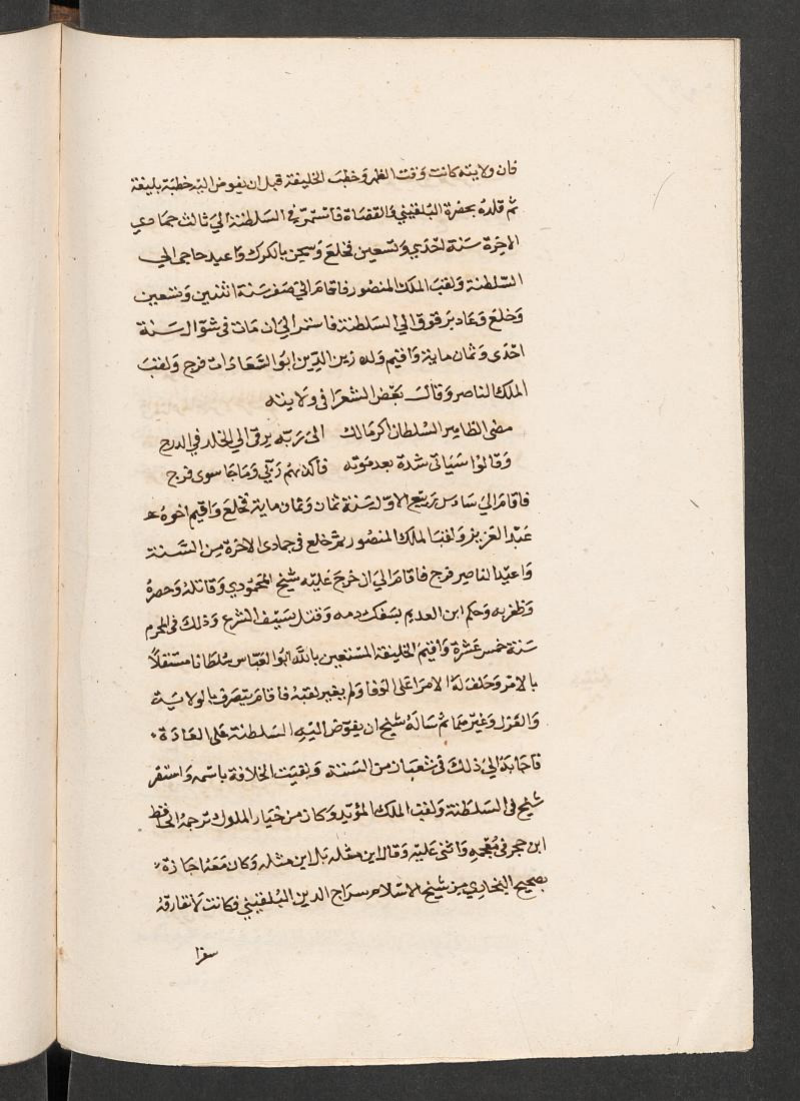 فان ولايته كانت وقت الظهر وخطب الخليفة قبل ان يفوض اليه خطبة بليغة
ثم قلده بحضرة البلقيني والقضاة فاستمر في السلطنة الي ثالث جمادي
الاخرة سنة احدي وتسعين فخلع وسجن بالكرك واعيد حاجي الي
السلطنة ولقب الملك المنصور فاقام الي صفر سنة اثنين وتسعين
وخلع وعاد برقوق الي السلطنة فاستمر الي ان مات في شوال سنة
احدي وثمان ماية واقيم ولده زين الدين ابو السعادات فرج ولقب
الملك الناصر وقال بعض الشعرا في ولايته
مضي الظاهر السلطان اكرم مالك الي ربه يرقى الي الخلد في الدرج
وقالوا ستاتى شدة بعد موته فاكذبهم ربي وما جا سوى فرج
فاقام الي سادس ربيع الاول سنة ثمان وثمان ماية فخلع واقيم اخوه
عبد العزيز ولقب الملك المنصور ثم خلع في جمادى الاخرة من السنة
واعيد الناصر فرج فاقام الي ان خرج عليه شيخ المحمودي وقاتله وحصره
وظفر به وحكم ابن العديم بسفك دمه وقتل بسيف الشرع وذلك في المحرم
سنة خمس عشرة واقيم الخليفة المستعين بالله ابو العباس سلطانا مستقلا
بالامر وحلف له الامرا على الوفا ولم يغير لقبه فاقام يتصرف بالولاية
والعزل وغيرهما ثم ساله شيخ ان يفوض اليه السلطنة على العادة
فاجابه الي ذلك في شعبان من السنة وبقيت الخلافة باسمه واستقر
شيخ في السلطنة ولقب الملك المؤيد وكان من خيار الملوك ترجمه الحافظ
ابن حجر في معجمه واثنى عليه وقال اين مثله بل اين مثله وكان معه اجازة
بصحيح البخاري من شيخ الاسلام سراج الدين البلقيني فكانت لا تفارقه
سفرا